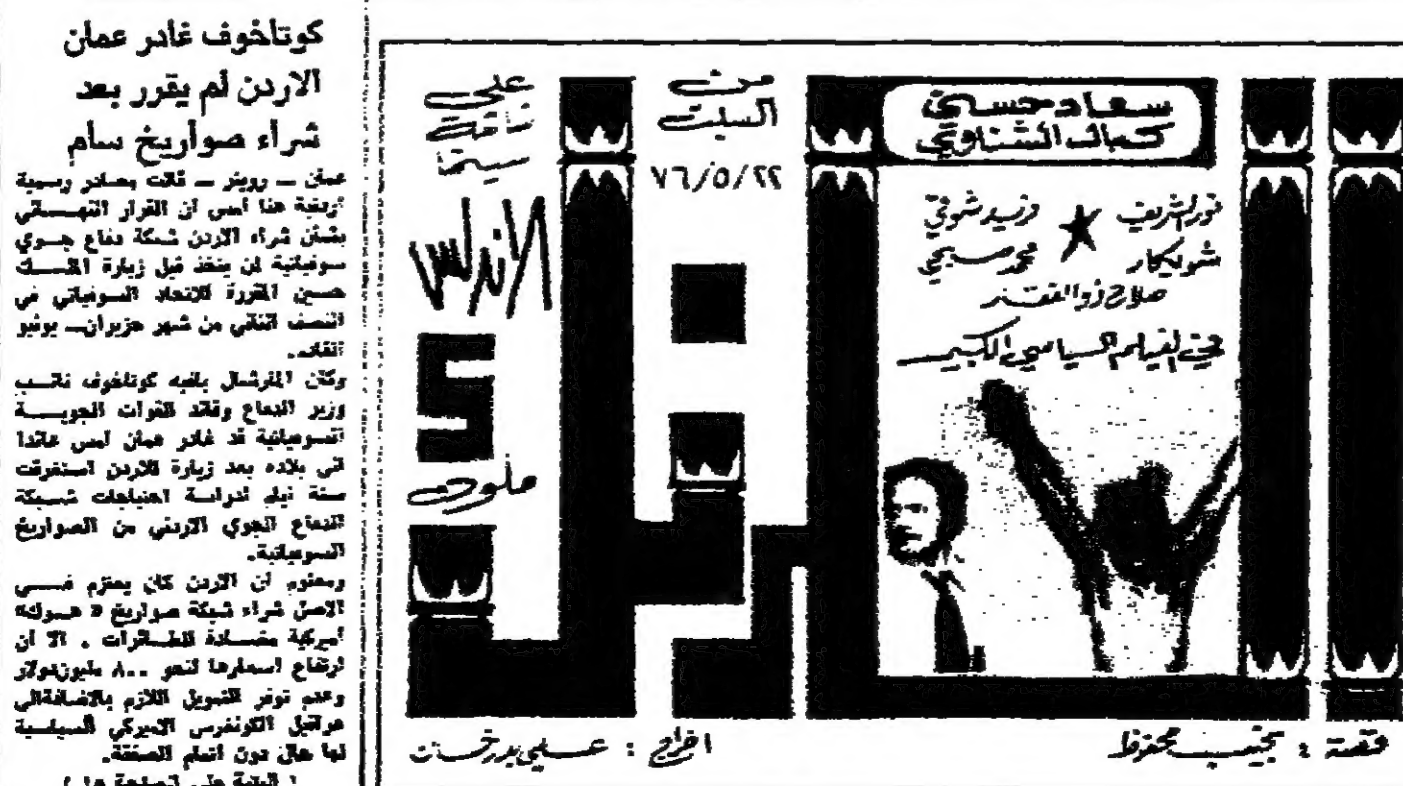 كوتاخوف غادر عمان
الاردن لم يقرر بعد
شراء صواريخ سام
عمان — رويتر — قالت مصادر رسمية
اردنية هنا أمس ان القرار النهـــائي
بشأن شراء الاردن شبكة دفاع جــوي
سوفياتية لن يتخذ قبل زيارة الملــك
حسين المقررة للاتحاد السوفياتي في
النصف الثاني من شهر حزيران— يونيو
القادم.
وكان المارشال بافيه كوتاخوف نائــب
وزير الدفاع وقائد القوات الجويـــة
السوفياتية قد غادر عمان امس عائدا
الى بلاده بعد زيارة للاردن استغرقت
ستة ايام لدراسة احتياجات شبـكة
الدفاع الجوي الاردني من الصواريخ
السوفياتية.
ومعلوم ان الاردن كان يعتزم فـــي
الاصل شراء شبكة صواريخ « هــوك»
أميركية مضــادة للطــائرات . الا ان
ارتفاع اسعارها لنحو ٨٠٠ مليون دولار
وعدم توفر التمويل اللازم بالاضافة الى
عراقيل الكونغرس الاميركي السياسية
لها حال دون اتمام الصفقة.
( البقية على الصفحة
على
شاشة
سينما
الاندلس
ملون
من
السبت
٧٦/٥/٢٢
سعاد حسني
كمال الشناوي
نور الشريف فريد شوقي
شويكار محمد صبحي
صلاح ذو الفقار
في الفيلم السياسي الكبير
الكرنك
قصة : نجيب محفوظ
اخراج : عــلي بدرخان